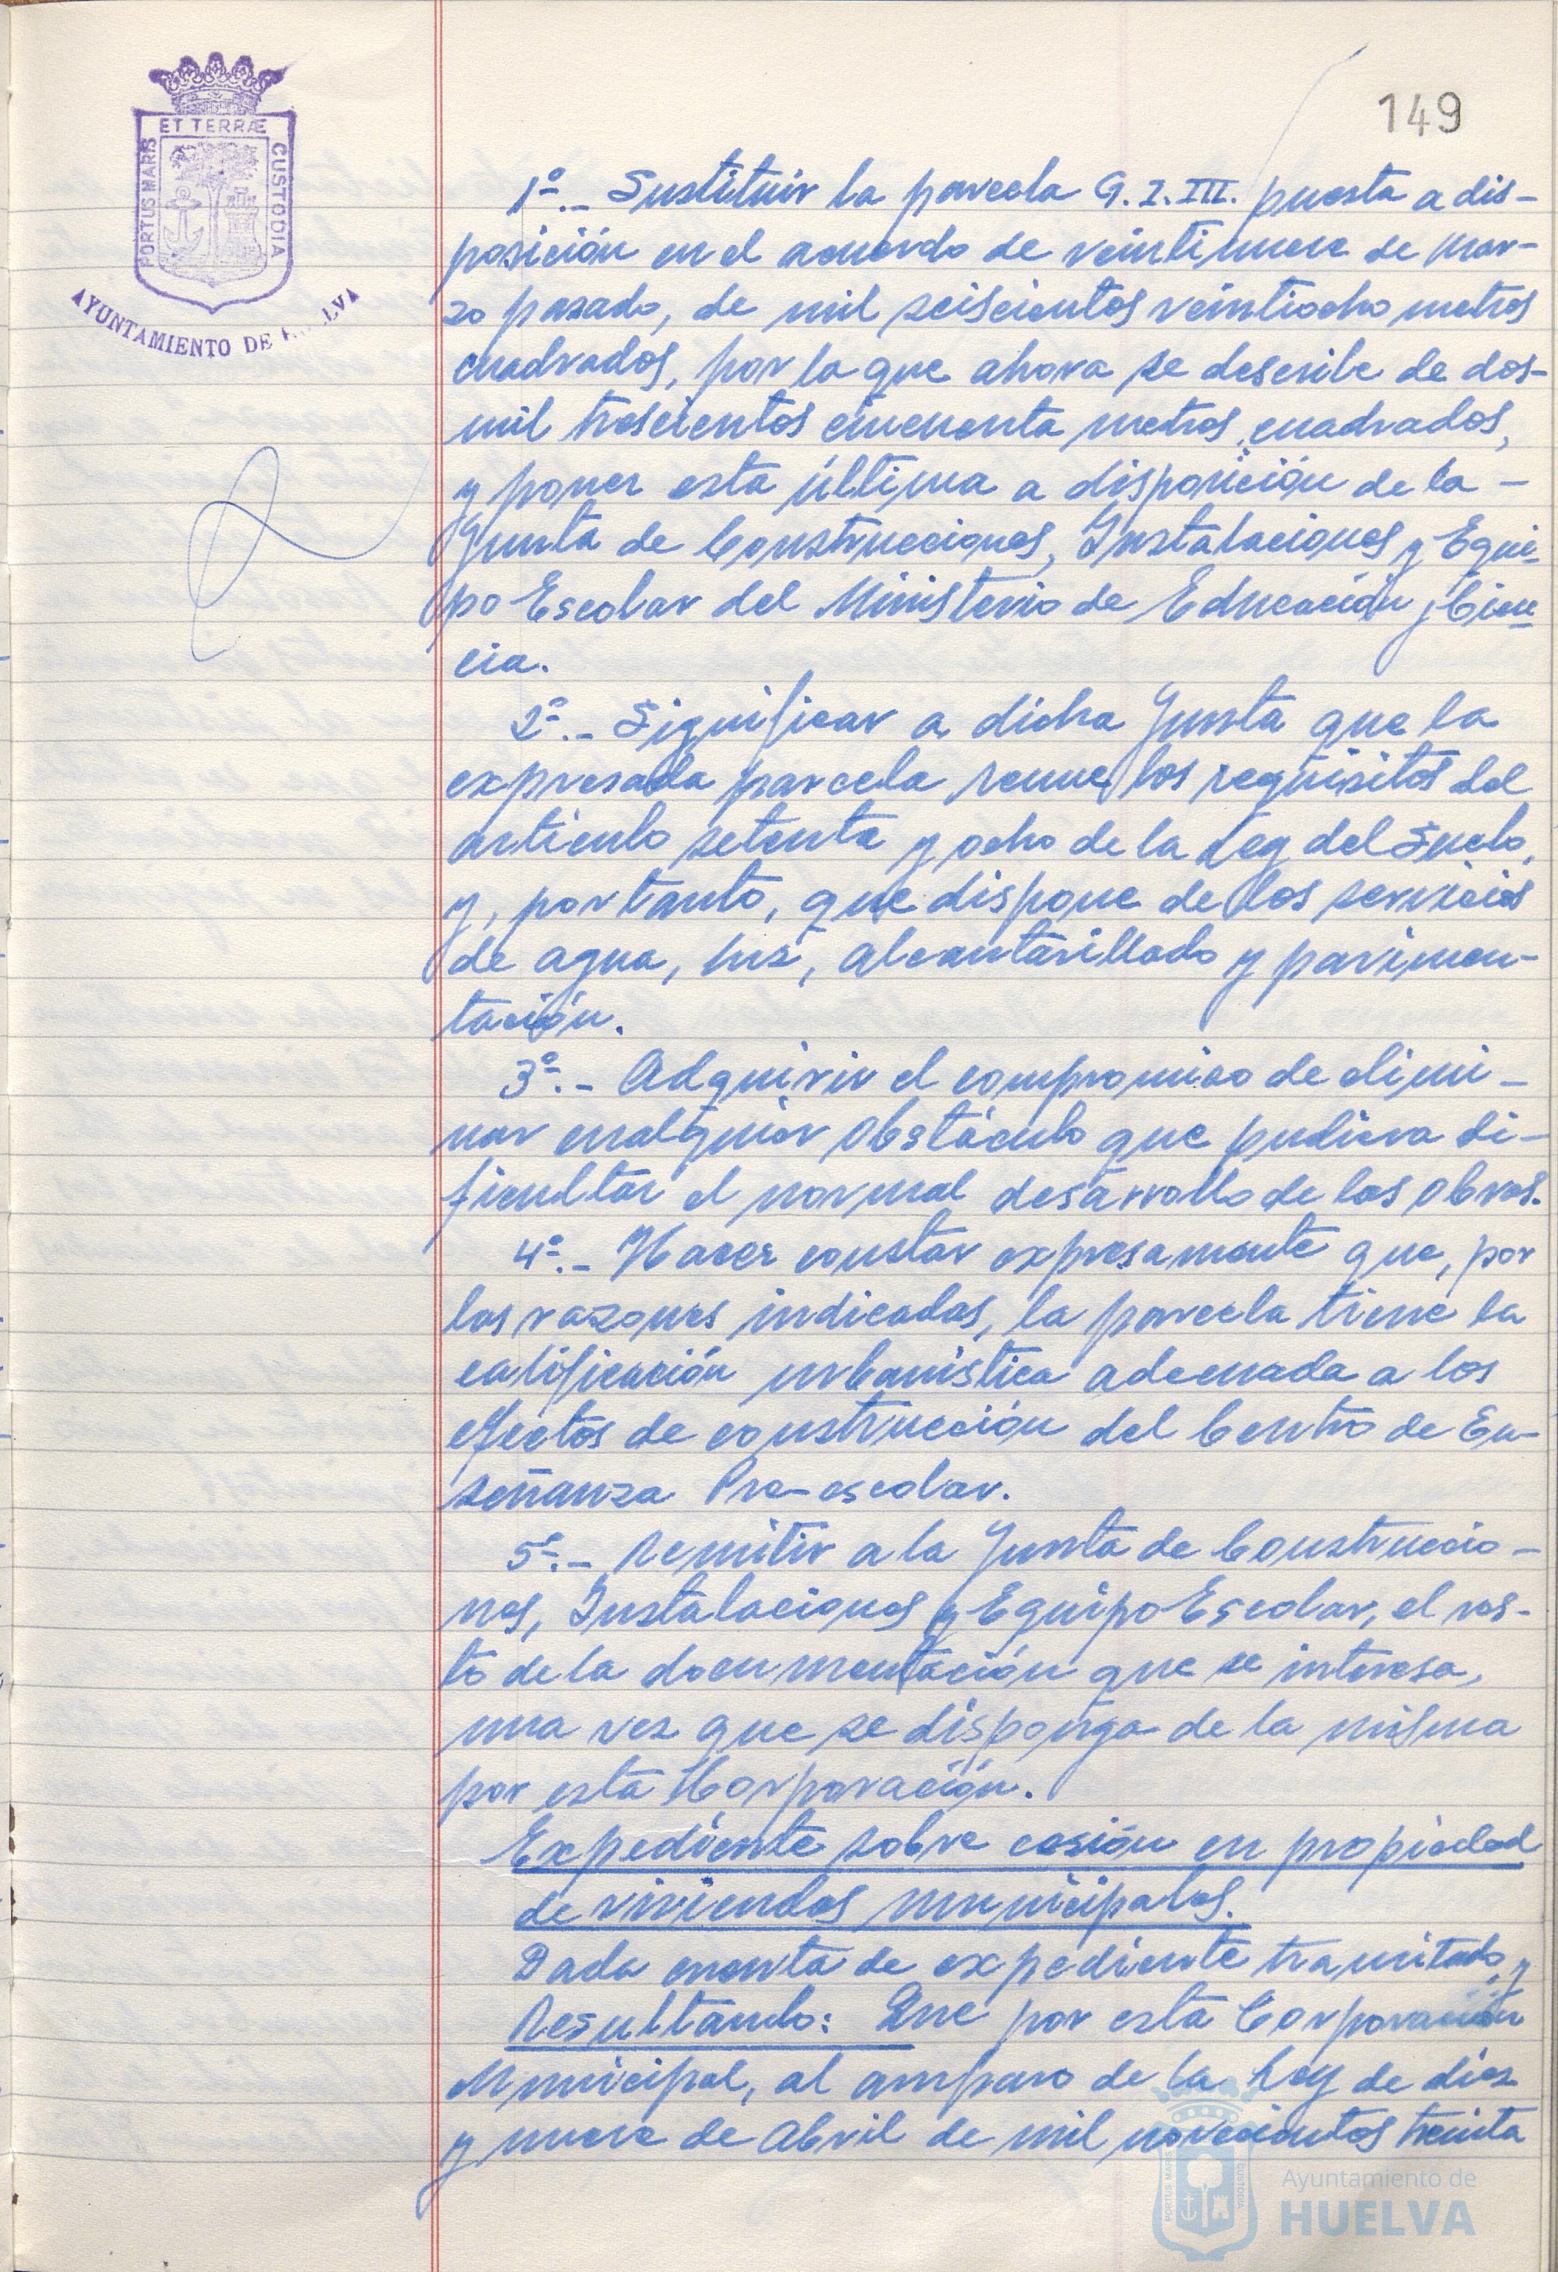 149
ET TERRÆ
PORTUS MARIS
CUSTODIA
AYUNTAMIENTO DE HUELVA
1º.- Sustituir la parcela G.I.III. puesta a dis-
posición en el acuerdo de veintinueve de Mar-
zo pasado, de mil seiscientos veintiocho metros
cuadrados, por la que ahora se describe de dos-
mil trescientos cincuenta metros cuadrados,
y poner esta última a disposición de la -
Junta de Construcciones, Instalaciones y Equi-
po Escolar del Ministerio de Educación y Cien-
cia.
2º.- Significar a dicha Junta que la
expresada parcela reune los requisitos del
artículo setenta y ocho de la Ley del Suelo,
y, por tanto, que dispone de los servicios
de agua, luz, alcantarillado y pavimen-
tación.
3º.- Adquirir el compromiso de elimi-
nar cualquier obstáculo que pudiera di-
ficultar el normal desarrollo de las obras.
4º.- Hacer constar expresamente que, por
las razones indicadas, la parcela tiene la
calificación urbanística adecuada a los
efectos de construcción del Centro de En-
señanza Pre-escolar.
5º.- Remitir a la Junta de Construccio-
nes, Instalaciones y Equipo Escolar, el res-
to de la documentación que se interesa,
una vez que se disponga de la misma
por esta Corporación.
Expediente sobre cesión en propiedad
de viviendas municipales.
Dada cuenta de expediente tramitado, y
Resultando: Que por esta Corporación
Municipal, al amparo de la Ley de diez
y nueve de Abril de mil novecientos treinta
PORTUS MARIS
CUSTODIA
Ayuntamiento de
HUELVA